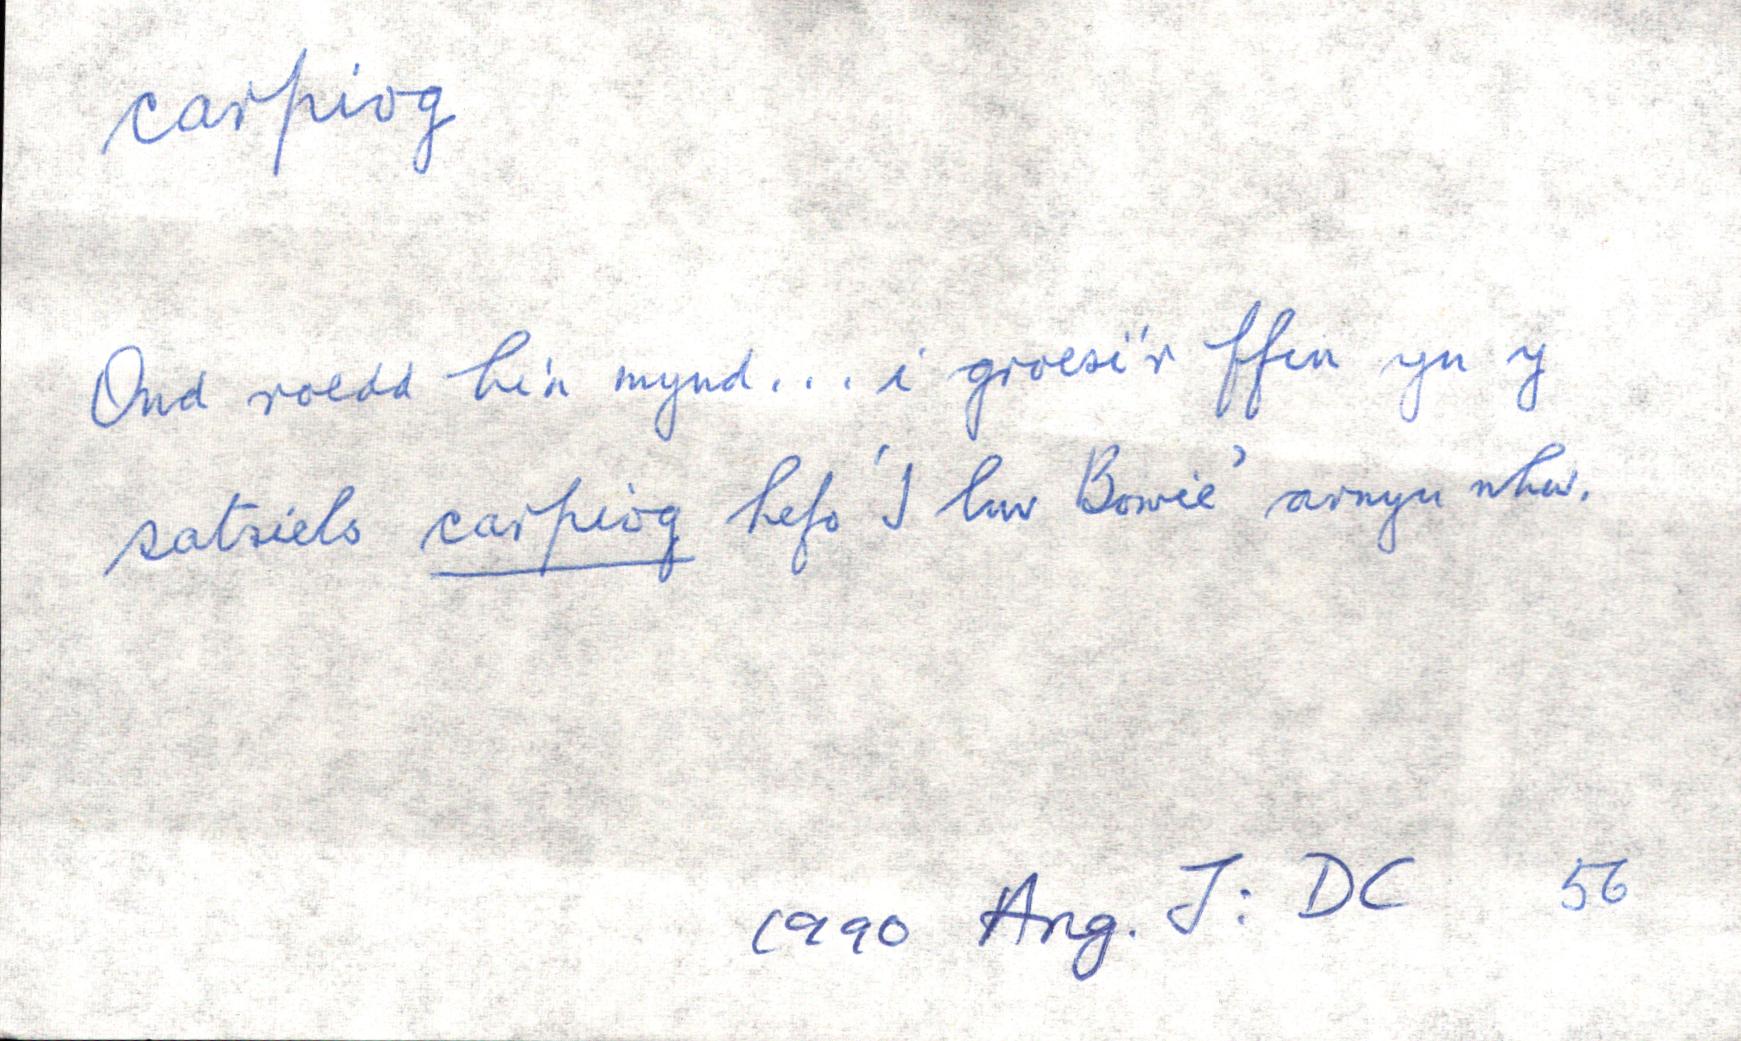 carpiog
Ond roedd hi'n mynd... i groesi'r ffin yn y
satsiels carpiog hefo 'I luv Bowie' arnyn nhw.
1990 Ang. J: DC 56